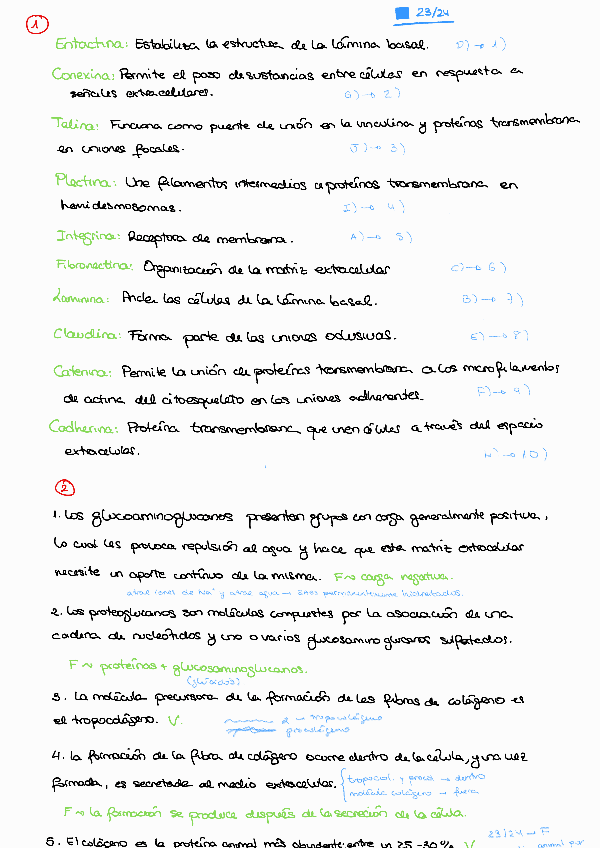 23/24
1
Entactina: Estabiliza la estructura de la lámina basal. D) → 1)
Conexina: Permite el paso de sustancias entre células en respuesta a
señales extracelulares. G) → 2)
Talina: Funciona como puente de unión en la vinculina y proteínas transmembrana
en uniones focales. J) → 3)
Plectina: Une filamentos intermedios a proteínas transmembrana en
hemidesmosomas. I) → 4)
Integrina: Receptora de membrana. A) → 5)
Fibronectina: Organización de la matriz extracelular C) → 6)
Laminina: Ancla las células de la lámina basal. B) → 7)
Claudina: Forma parte de las uniones oclusivas. E) → 8)
Catenina: Permite la unión de proteínas transmembrana a los microfilamentos
de actina del citoesqueleto en las uniones adherentes. F) → 9)
Cadherina: Proteína transmembrana que unen células a través del espacio
extracelular. → 10)
2
1. Los glucoaminoglucanos presentan grupos con carga generalmente positiva,
lo cual les provoca repulsión al agua y hace que esta matriz extracelular
necesite un aporte continuo de la misma. F ~ carga negativa.
atrae iones de Na⁺ y atrae agua → permanentemente hidratados.
2. Los proteoglucanos son moléculas compuestas por la asociación de una
cadena de nucleótidos y uno o varios glucosaminoglucanos sulfatados.
F ~ proteínas + glucosaminoglucanos.
(glúcidos)
3. La molécula precursora de la formación de las fibras de colágeno es
el tropocolágeno. V. tropocolágeno
procolágeno
4. La formación de la fibra de colágeno ocurre dentro de la célula, y una vez
formada, es secretada al medio extracelular. tropocol. y procol → dentro
molécula colágeno → fuera
F ~ la formación se produce después de la secreción de la célula.
23/24 → F
5. El colágeno es la proteína animal más abundante: entre un 25-30% V animal por